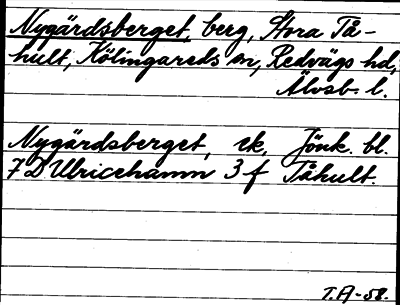 Nygärdsberget, berg, Stora Tå-
hult, Kölingareds sn, Redvägs hd,
Älvsb. l.
Nygärdsberget, ek, Jönk. bl.
7 D Ulricehamn 3 f Tåhult.
T.A-58.